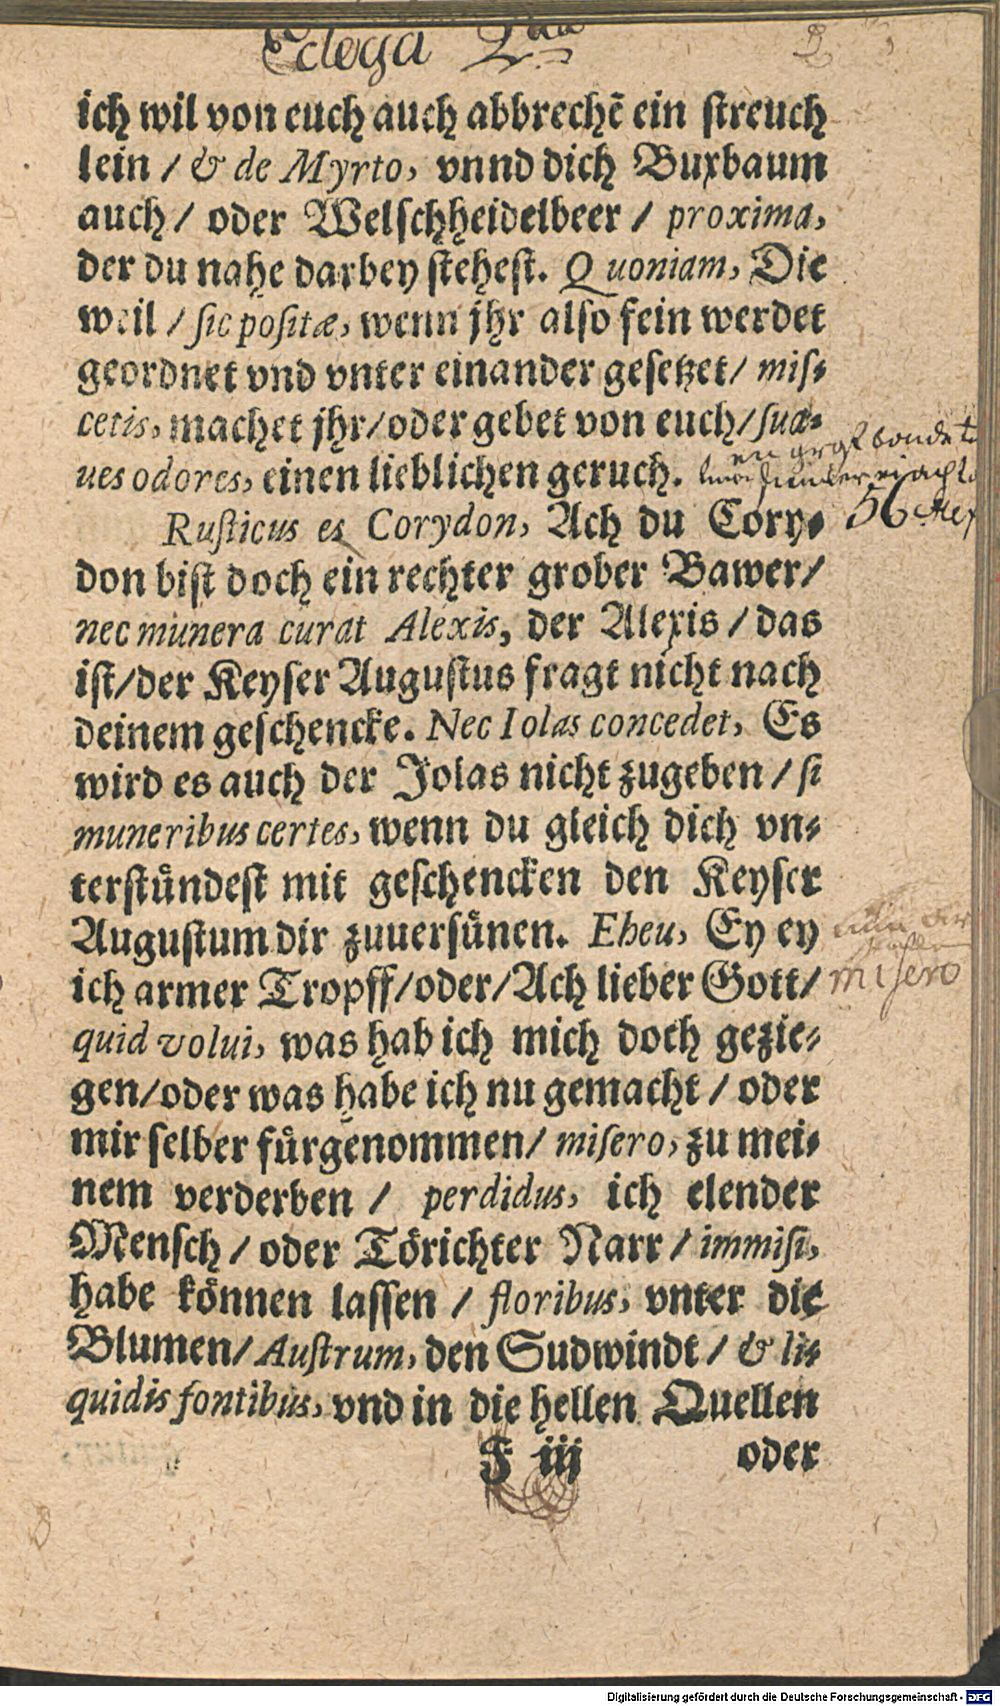 Ecloga 2da
ich wil von euch auch abbrechē ein streuch
lein / & de Myrto, vnnd dich Buxbaum
auch / oder Welschheidelbeer / proxima,
der du nahe darbey stehest. Quoniam, Die
weil / sic positæ, wenn jhr also fein werdet
geordnet vnd vnter einander gesetzet / mis-
cetis, machet jhr / oder gebet von euch / sua-
ues odores, einen lieblichen geruch.
Rusticus es Corydon, Ach du Cory-
56
don bist doch ein rechter grober Bawer /
nec munera curat Alexis, der Alexis / das
ist / der Keyser Augustus fragt nicht nach
deinem geschencke. Nec Iolas concedet, Es
wird es auch der Jolas nicht zugeben / si
muneribus certes, wenn du gleich dich vn-
terstündest mit geschencken den Keyser
Augustum dir zuuersünen. Eheu, Ey ey
ich armer Tropff / oder / Ach lieber Gott /
misero
quid volui, was hab ich mich doch gezie-
gen / oder was habe ich nu gemacht / oder
mir selber fürgenommen / misero, zu mei-
nem verderben / perdidus, ich elender
Mensch / oder Törichter Narr / immisi,
habe können lassen / floribus, vnter die
Blumen / Austrum, den Sudwindt / & li-
quidis fontibus, vnd in die hellen Quellen
F iij oder
Digitalisierung gefördert durch die Deutsche Forschungsgemeinschaft - DFG